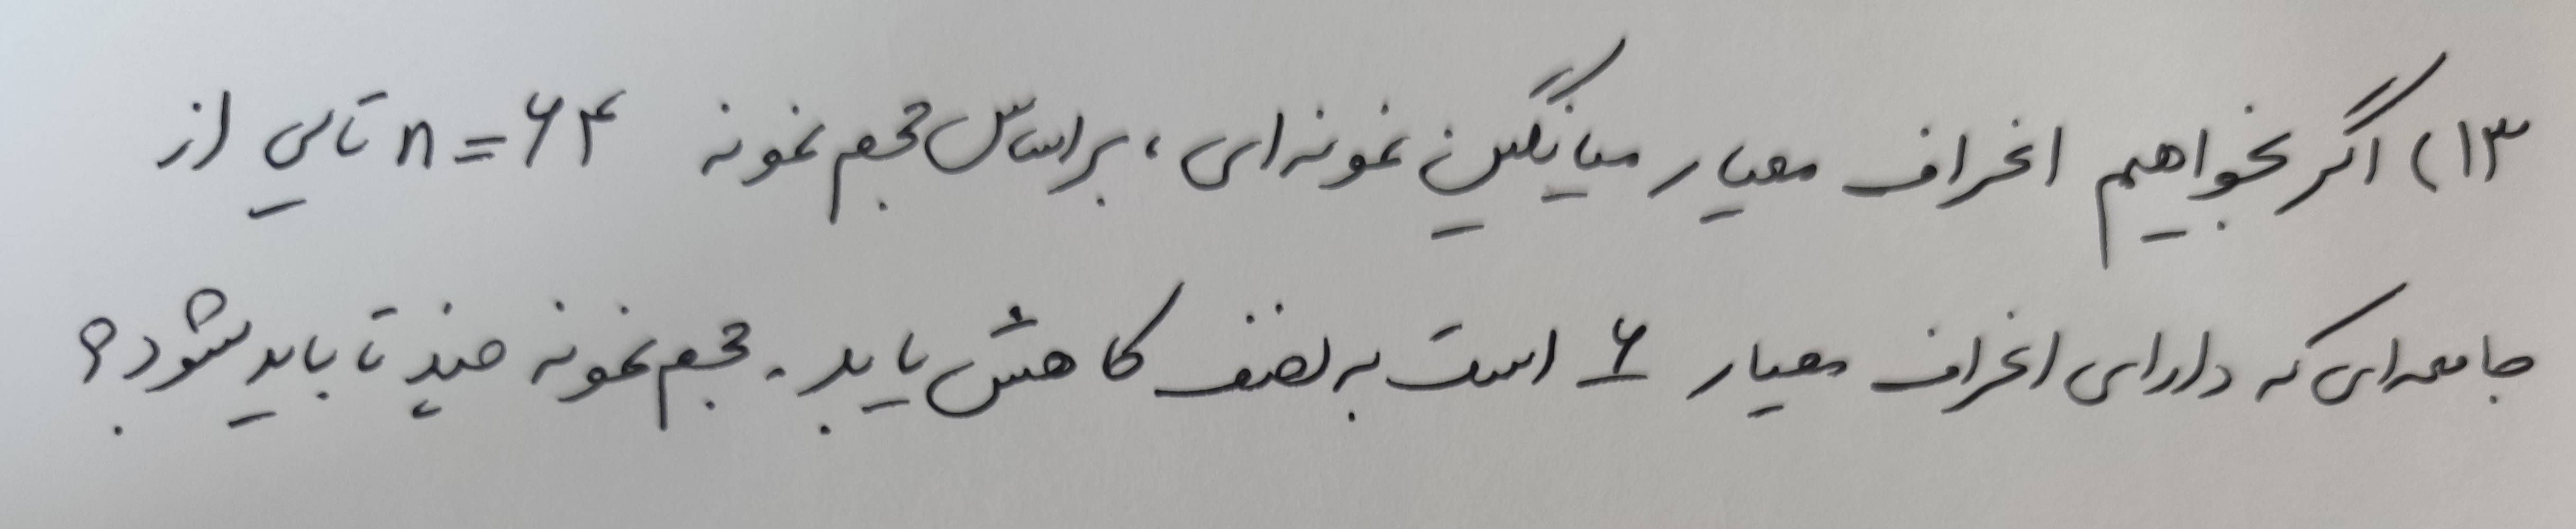 ۱۳) اگر بخواهیم انحراف معیار میانگین نمونه‌ای، براساس حجم نمونه n = ۶۴ تایی از
جامعه‌ای که دارای انحراف معیار ۶ است به نصف کاهش یابد. حجم نمونه چند تا باید بشود؟